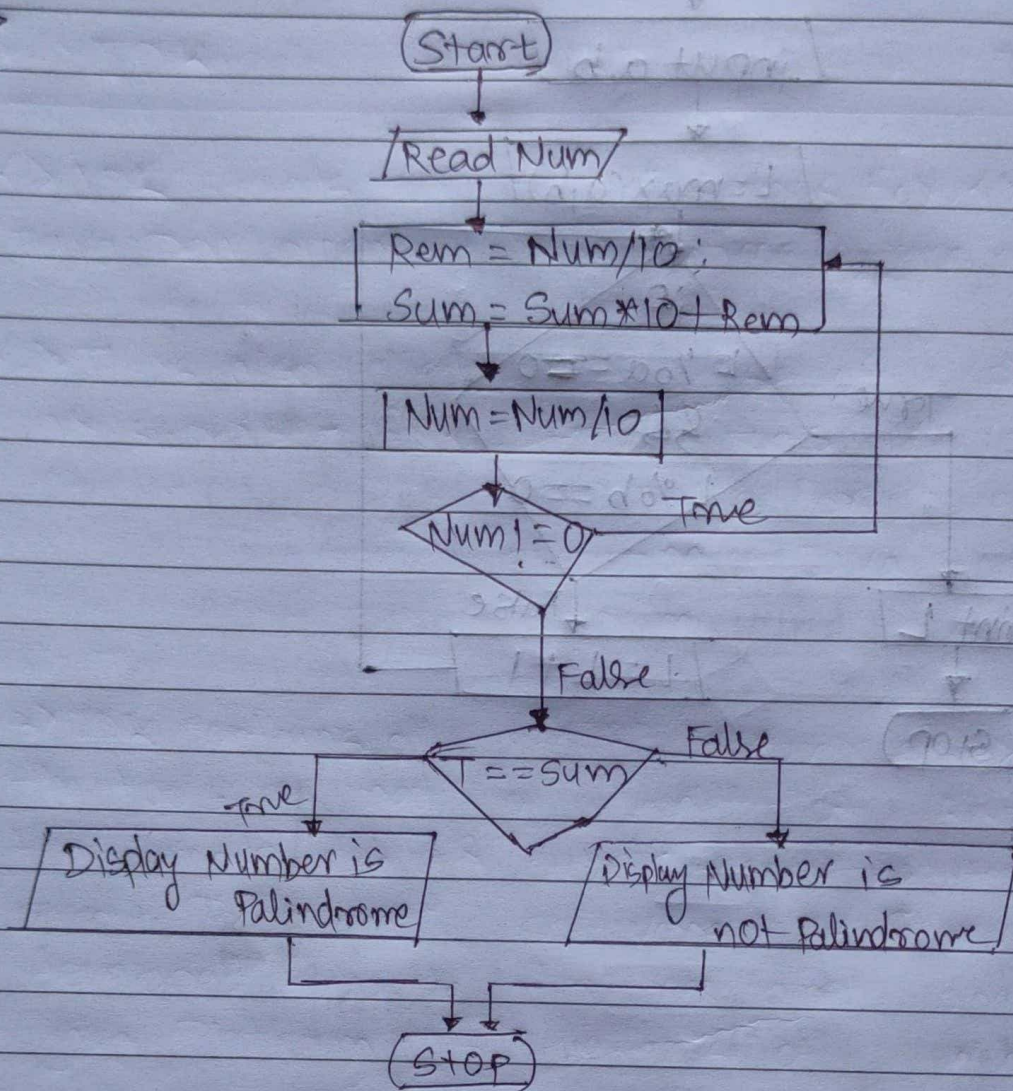 Start
Read Num
Rem = Num/10;
Sum = Sum*10+Rem
Num=Num/10
Num!=0
True
False
T==Sum
False
True
Display Number is
Palindrome
Display Number is
not Palindrome
Stop